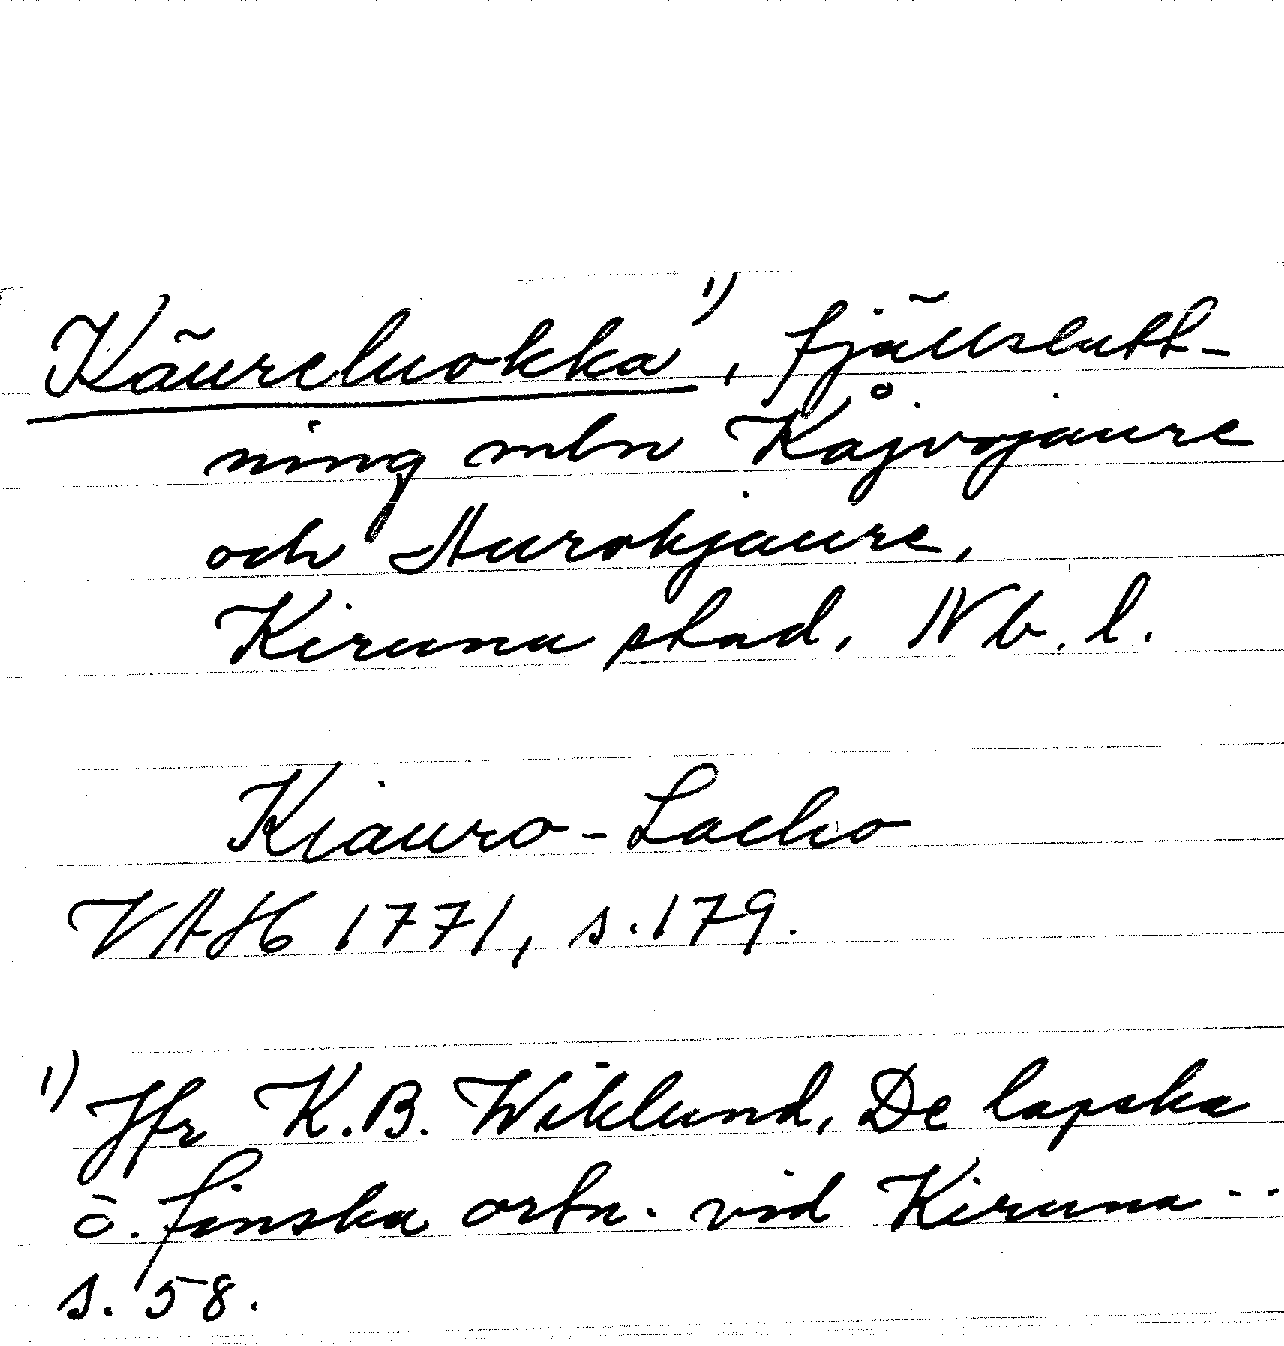 Käureluokka¹⁾, fjällslutt-
ning mln Kåjvojaure
och Aurokjaure,
Kiruna stad, Nb. l.
Kiauro-Lacho
VAH 1771, s. 179.
¹⁾ Jfr K.B. Wiklund, De lapska
o. finska ortn. vid Kiruna ..
s. 58.